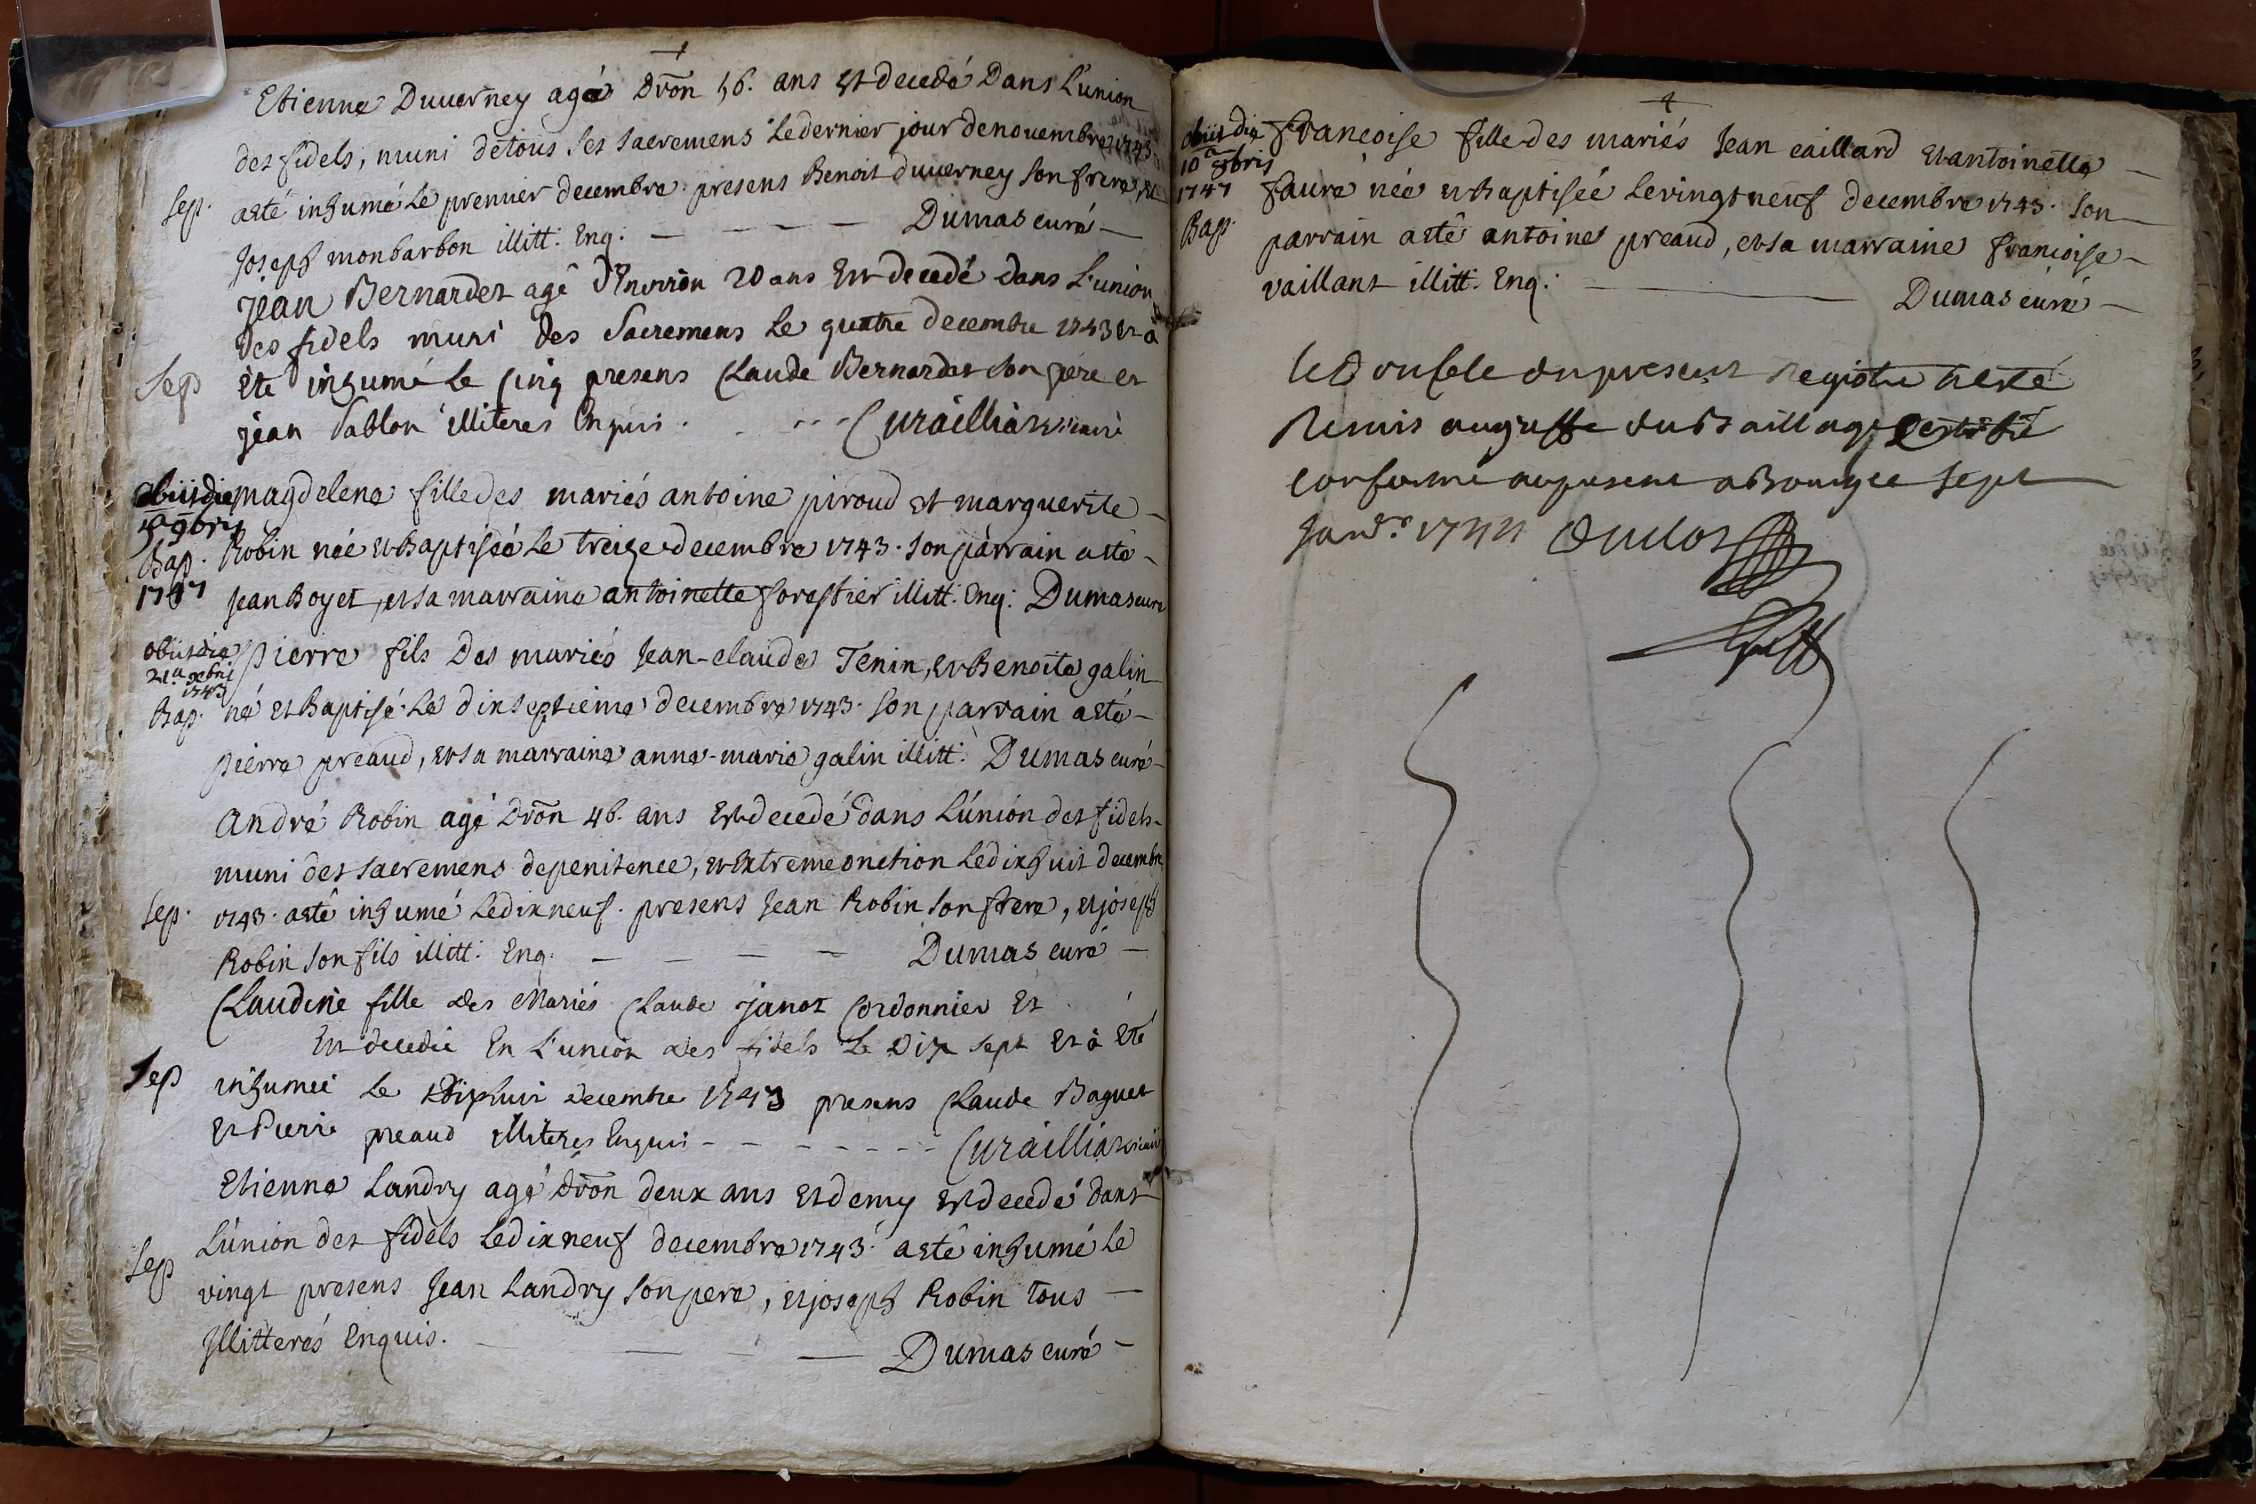 Etienne Duverney agé dron 56. ans Est decedé Dans L'union
des fidels, muni de tous ses sacremens Le dernier jour de novembre 1743
Sep. aeté inhumé Le premier decembre presens Benoit duverney son frere, et
Joseph monbarbon illitt. Enq. Dumas curé
Jean Bernardet agé d'Environ 20 ans Est decedé dans L'union
des fidels muni des Sacremens Le quatre decembre 1743 et a
Sep Eté inhumé Le cinq presens Claude Bernardet son père et
jean Sablon illiteres Enquis . Curaillia vicaire
obiit die magdelene fille des mariés antoine piroud et marguerite
5a 9bris
Bap. Robin née et Baptiséé Le treize decembre 1743. son parrain aeté
1747 Jean Boyet, et sa marraine antoinette forestier illitt. Enq: Dumas curé
obiit die pierre fils Des mariés Jean-claude Tenin, et Benoite galin
21a xbris
1743
Bap. né et Baptisé Le dixseptieme decembre 1743. son parrain aeté
pierre preaud, et sa marraine anne-marie galin illitt. Dumas curé
André Robin agé dron 46. ans Est decedé dans L'union des fidels
muni des sacremens de penitence, et Extreme onction Le dixhuit decembre
Sep. 1743. aeté inhumé Le dixneuf. presens Jean Robin son frere, et joseph
Robin son fils illitt. Enq. Dumas curé
Claudine fille des Mariés Claude janot Cordonnier Et
Est decedée En L'union des fidels Le Dix sept Et à Eté
Sep inhumeé Le Dixhuit decembre 1743 presens Claude Baguet
Et Pierre preaud illiteres Enquis - - - - - - Curaillia vicaire
Etienne Landry agé dron deux ans et demy Est decedé dans
L'union des fidels Le dixneuf decembre 1743. aeté inhumé Le
Sep vingt presens Jean Landry son pere, et joseph Robin tous
Illitterés Enquis. Dumas curé
obiit die francoise fille des mariés Jean caillard et antoinette
10a 8bris
1747 faure née et Baptiséé Le vingt neuf decembre 1743. son
Bap. parrain aeté antoine preaud, et sa marraine francoise
vaillant illitt. Enq: Dumas curé
le Double du present Registre a eté
Remis au greffe du Baillage
conforme au present a Bourg ce sept
Janv. 1744 Duclos